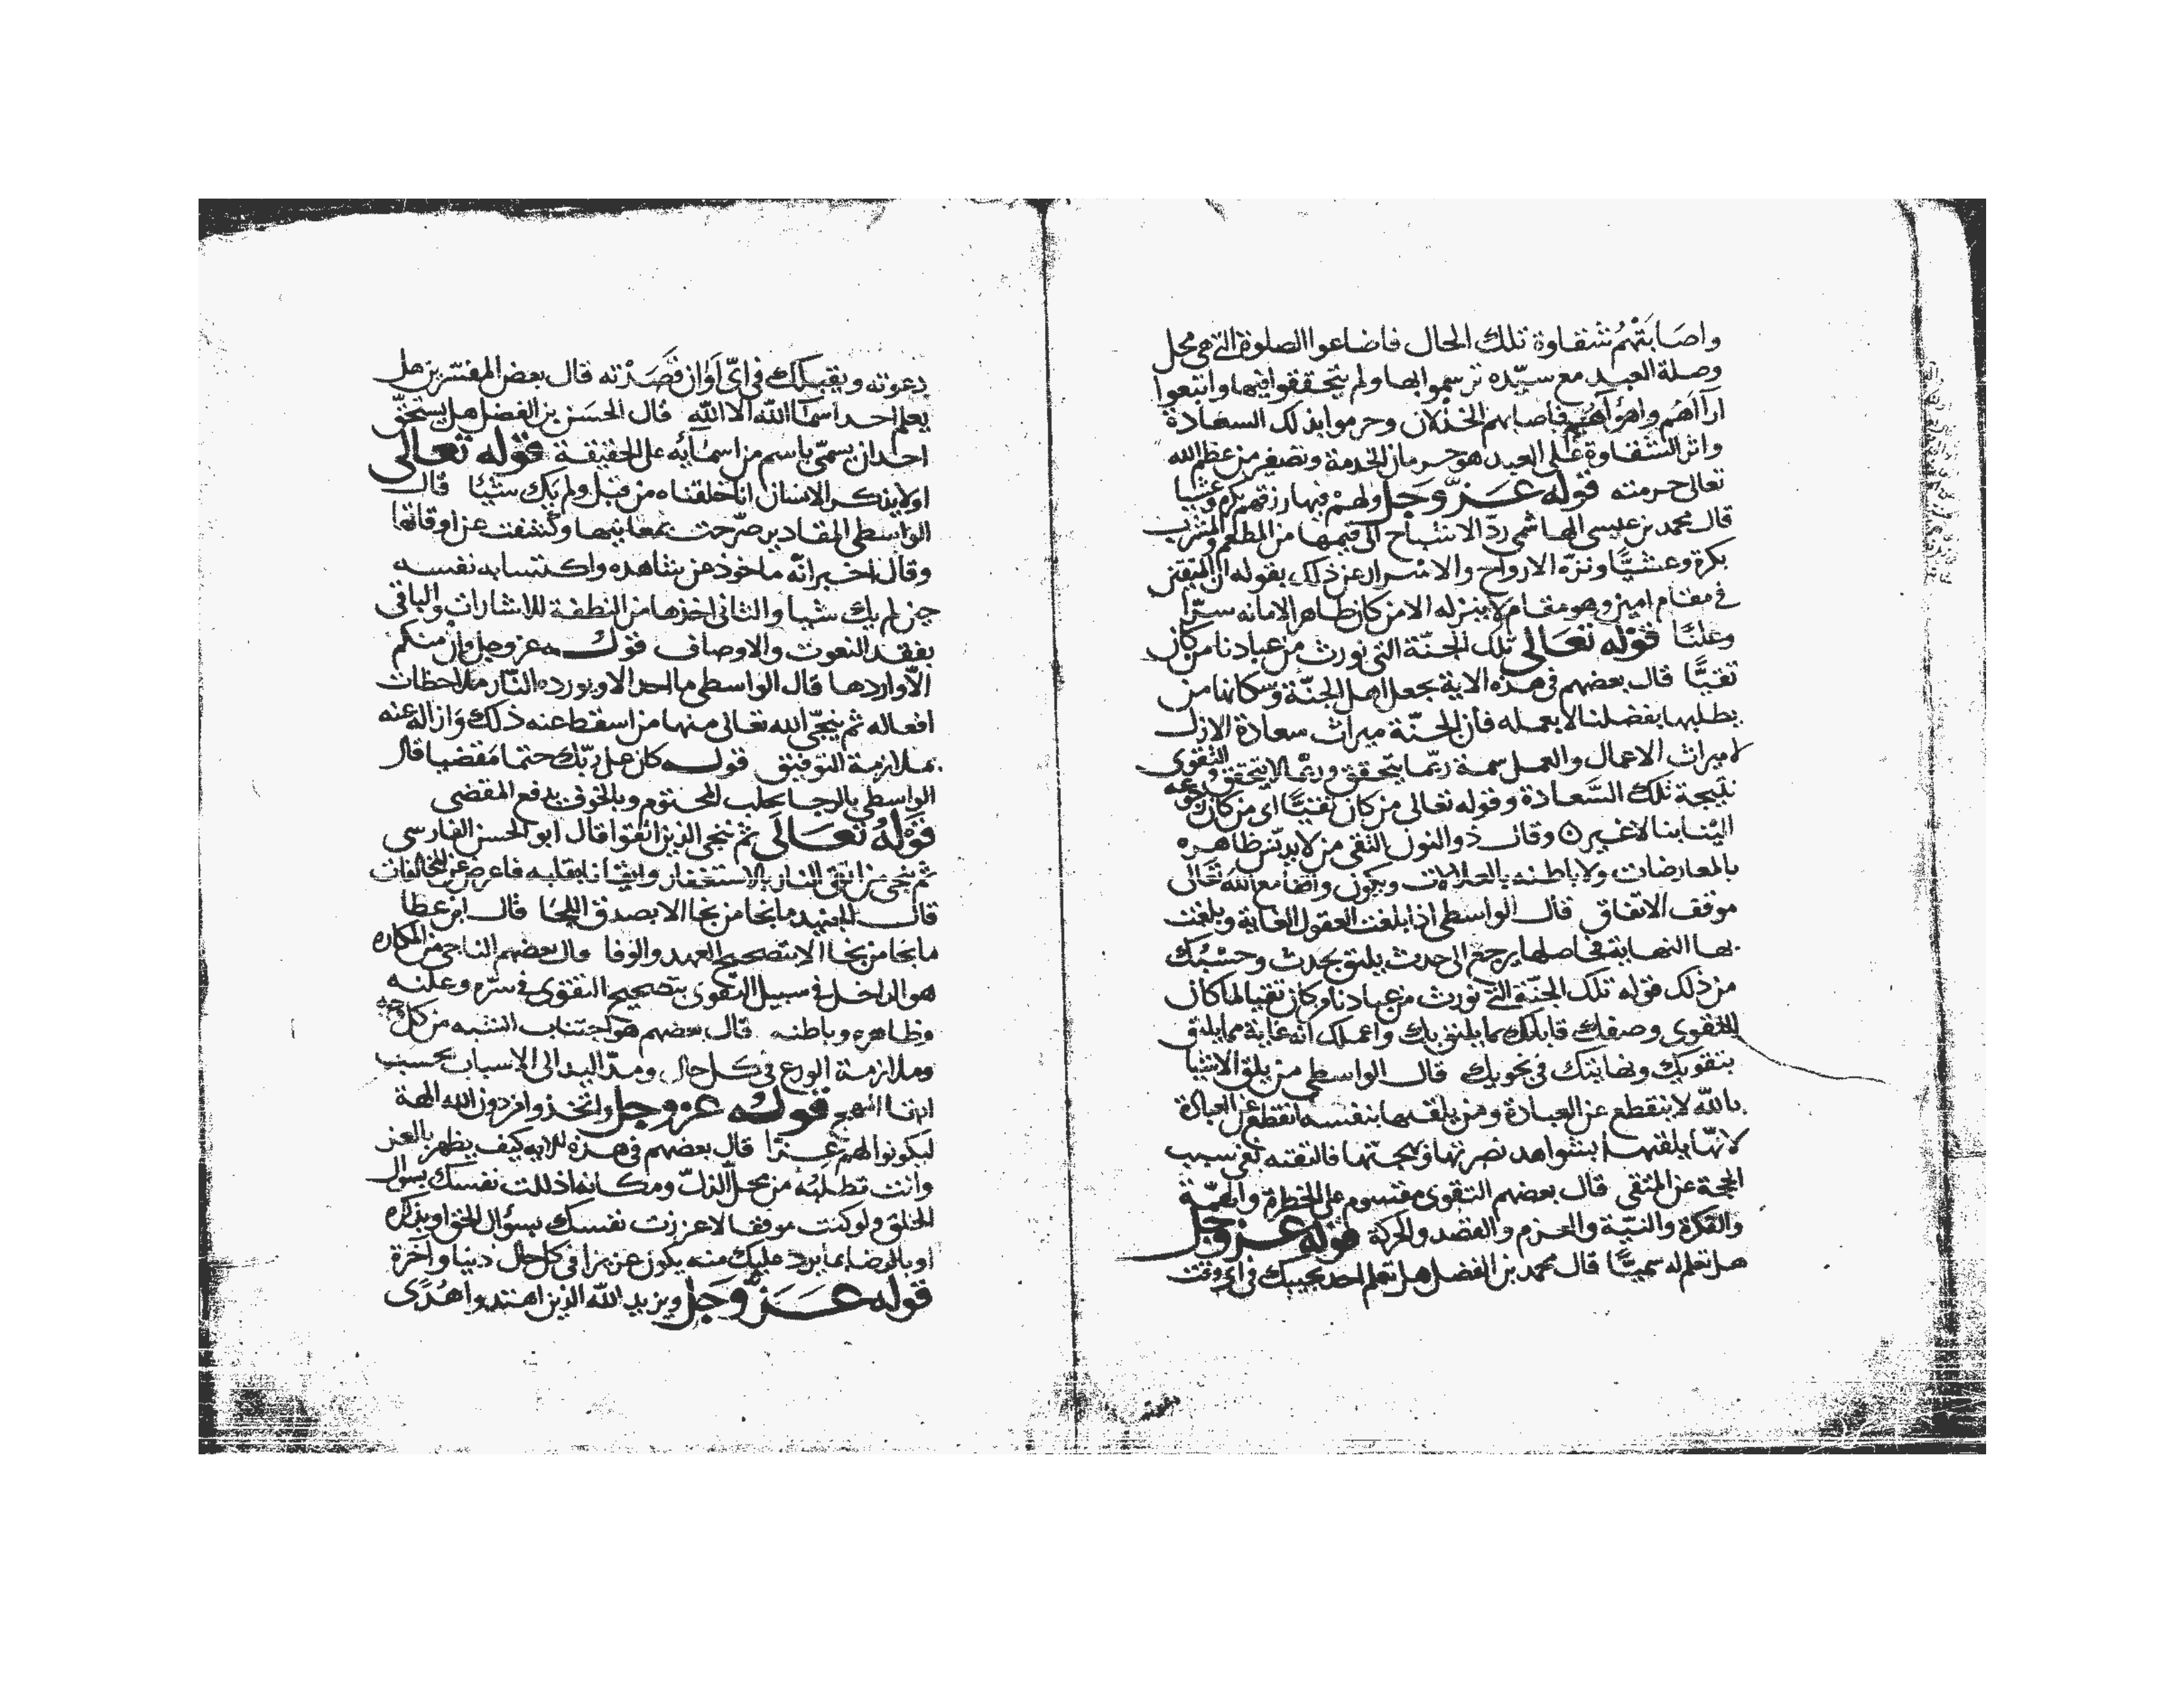 واصابتهم شقاوة تلك الحال فاضاعوا الصلوة التي هي محل
وصلة العبد مع سيده ترسموا بها ولم يتحققوا فيها واتبعوا
اراآهم واهوآهم فاصابهم الخذلان وحرموا بذلك السعادة
واثر الشقاوة على العبد هو حرمان الخدمة وتصغير من عظم الله
تعالى حرمته قوله عز وجل ولهم فيها رزقهم بكرة وعشيا
قال محمد بن عيسى الهاشمي رد الاشباح الى قيمها من المطعم والمشرب
بكرة وعشيا ونزه الارواح والاسرار عن ذلك بقوله ان المتقين
في مقام امين وهو مقام لا ينزله الا من كان طاهر الامانه سرا
وعلنا قوله تعالى تلك الجنة التي نورث من عبادنا من كان
تقيا قال بعضهم في هذه الاية يجعل اهل الجنة وسكانها من
يطلبها بفضلنا لا بعمله فان الجنة ميراث سعادة الازل
لا ميراث الاعمال والعمل سمة ربما يتحقق وربما لا يتحقق والتقوى
نتيجة تلك السعادة وقوله تعالى من كان تقيا اي من كان رجوعه
الينا بنا لا غير ه وقال ذو النون التقى من لا يدنس ظاهره
بالمعارضات ولا باطنه بالعلالات ويكون واقفا مع الله تعالى
موقف الاتفاق قال الواسطي اذا بلغت العقول الغاية وبلغت
بها النهاية فحاصلها يرجع الى حدث يليق بحدث وحسبك
من ذلك قوله تلك الجنة التي نورث من عبادنا من كان تقيا لما كان
التقوى وصفك قابلك بما يليق بك واعملك انه غاية مما يليق
بتقويك ونهايتك في نجويك قال الواسطي من يلق الاشيا
بالله لا ينقطع عن العبادة ومن يلقها بنفسه انقطع عن العبادة
لانها يلقتها بشواهد نصرتها وبهجتها فالتقته نفى سبب
الحجة عن المتقى قال بعضهم التقوى مقسوم على الخطرة والهمة
والفكرة والنية والعزم والقصد والحركة قوله عز وجل
هل تعلم له سميا قال محمد بن الفضل هل تعلم احد يجيبك في اي وقت
دعوته ويقبلك في اي اوان قصدته قال بعض المفسرين هل
يعلم احد اسما الله الا الله قال الحسن بن الفضل هل يستحق
احد ان يسمى باسم من اسمائه على الحقيقة قوله تعالى
اولا يذكر الانسان انا خلقناه من قبل ولم يك شيئا قال
الواسطي المقادير صرحت بمعانيها وكشفت عن اوقاتها
وقال اخبر انه ماخوذ عن شاهده واكتسابه نفسه
حين لم يك شيا والثاني اخذها من النطفة للاشارات والباقي
بفقد النعوت والاوصاف قوله عز وجل وان منكم
الا واردها قال الواسطي ما احد الا ويورده النار ملاحظات
افعاله ثم ينجي الله تعالى منها من اسقط عنه ذلك وازاله عنه
بملازمة التوفيق قوله كان على ربك حتما مقضيا قال
الواسطي بالرجا يجلب المحتوم وبالخوف يدفع المقضي
قوله تعالى ثم ننجي الذين اتقوا قال ابو الحسن الفارسي
ثم ننجي من اتقى النار بالاستغفار وايقانا بقلبه فاعرض عن المخالفات
قال الجنيد ما نجا من نجا الا بصدق اللجا قال ابن عطا
ما نجا من نجا الا بتصحيح العهد والوفا وال بعضهم الناجي من المكاره
هو الداخل في سبيل التقوى بتصحيح التقوى في سره وعلنه
وظاهره وباطنه قال بعضهم هو اجتناب الشبه من كل وجه
وملازمة الورع في كل حال ومد اليد الى الاسباب بحسب
قوله عز وجل واتخذوا من دون الله الهة
ليكونوا لهم عزا قال بعضهم في هذه الاية كيف يظهر بالعز
وانت تطلبه من محل الذل ومكانه اذللت نفسك بسوال
الخلق ولو كنت موفقا لاعززت نفسك بسؤال الحق او بذكره
او بالرضا بما يرد عليك منه يكون عزيزا في كل حال دنيا وآخرة
قوله عز وجل ويزيد الله الذين اهتدوا هدى